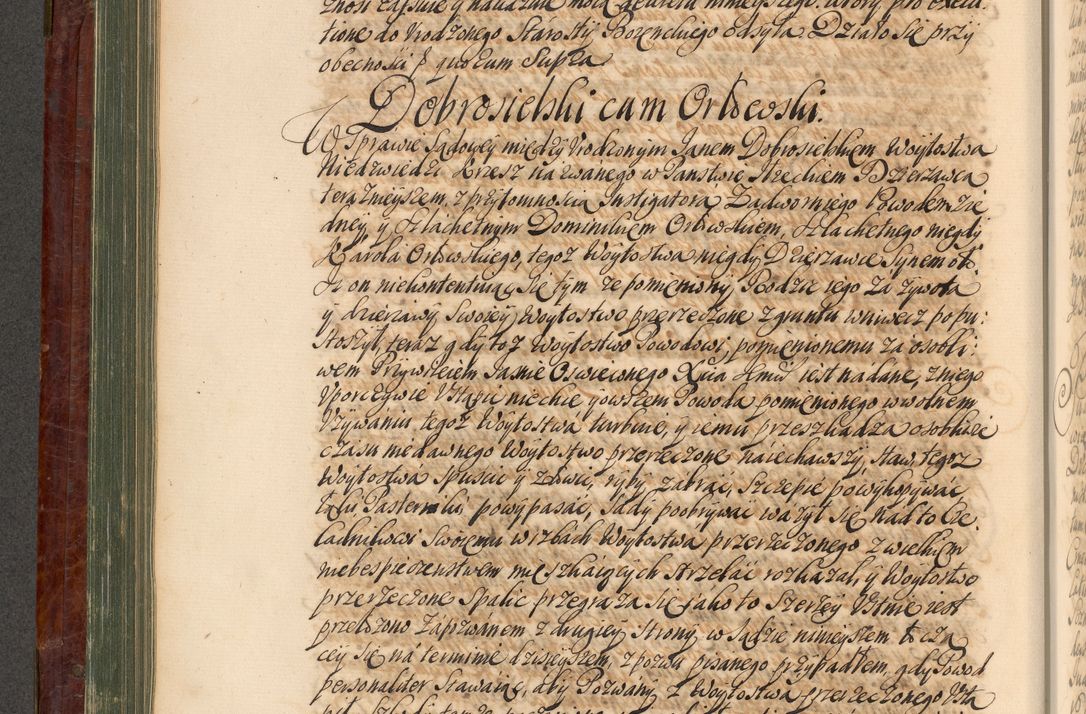 tione do Urodzonego Starosty Borenckiego odsyła Działo się przy
obecności quorum Supra
Dobrosielski cum Orłowski.
W Sprawie Sądowey między Urodzonym Janem Dobrosielskiem Woytostwa
Niedzwiedzi Krzesz nazwanego w Panstwie Dzierzawcą
teraznieyszem, z przytomnoscią Instigatora Zadwornego Powodem zie
dney, y Szlachetnym Dominikiem Orłowskiem, Szlachetnego niegdy
Karola Orłowskiego, tegoz Woytostwa niegdy Dzierzawce Synem oto
Iz on niekontentuiąc się tym ze pomieniony Rodzic iego za zywota
y dzierzawy Swoiey Woytostwo przerzeczone z gruntu wniwecz popu:
stoszył, teraz gdy toz Woytostwo Powodowi, pomienionemu za osobli:
wem Przywileiem Jasnie Oswieconego Xcia Jmci iest nadane, z niego
Uporczywie Ustąpic niechce y owszem Powoda pomienionego w wolnem
Uzywaniu tegoz Woytostwa turbuie, y iemu przeszkadza osobliwie
czasu niedawnego Woytostwo przerzeczone naiechawszy, staw tegoz
Woytostwa Spuscic y złowic, ryby zabrac, Szczepie powykopywac,
Łąki Pasterniki powypasac, Sady poobrywac wazył się nadto Cze:
ladnikowi Swoiemu w izbach Woytostwa przerzeczonego z wielkiem
niebespieczenstwem mieszkaiących strzelac rozkazał, y Woytostwo
przerzeczone Spalic przegraza się iako to Szerzey Ustnie iest
przełozono Zapozwanem z drugiey Strony w Sądzie ninieyszem tocza
cey się na terminie dzisieyszem, z pozwu pisanego przypadłem, gdy Powod
personaliter Stawaiąc, aby Pozwany z Woytostwa przerzeczonego Usta